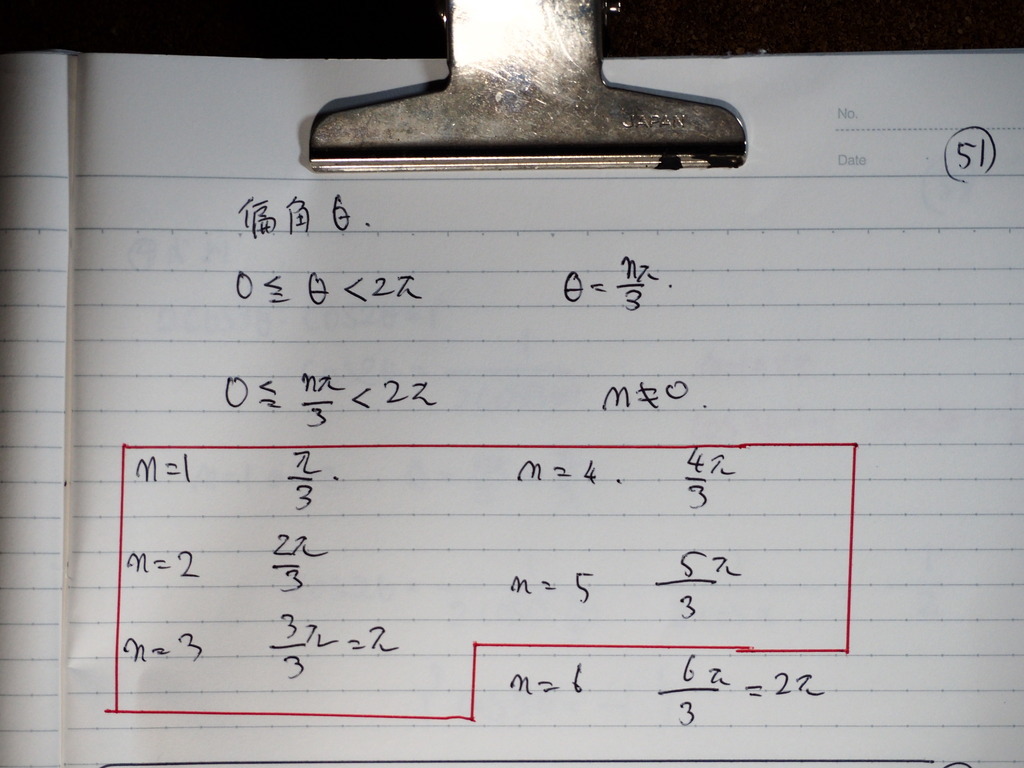 JAPAN
No.
Date
51
偏角 θ.
0 ≦ θ < 2π θ = nπ/3.
0 ≦ nπ/3 < 2π n ≠ 0.
n=1 π/3. n=4. 4π/3
n=2 2π/3 n=5 5π/3
n=3 3π/3 = π
n=6 6π/3 = 2π